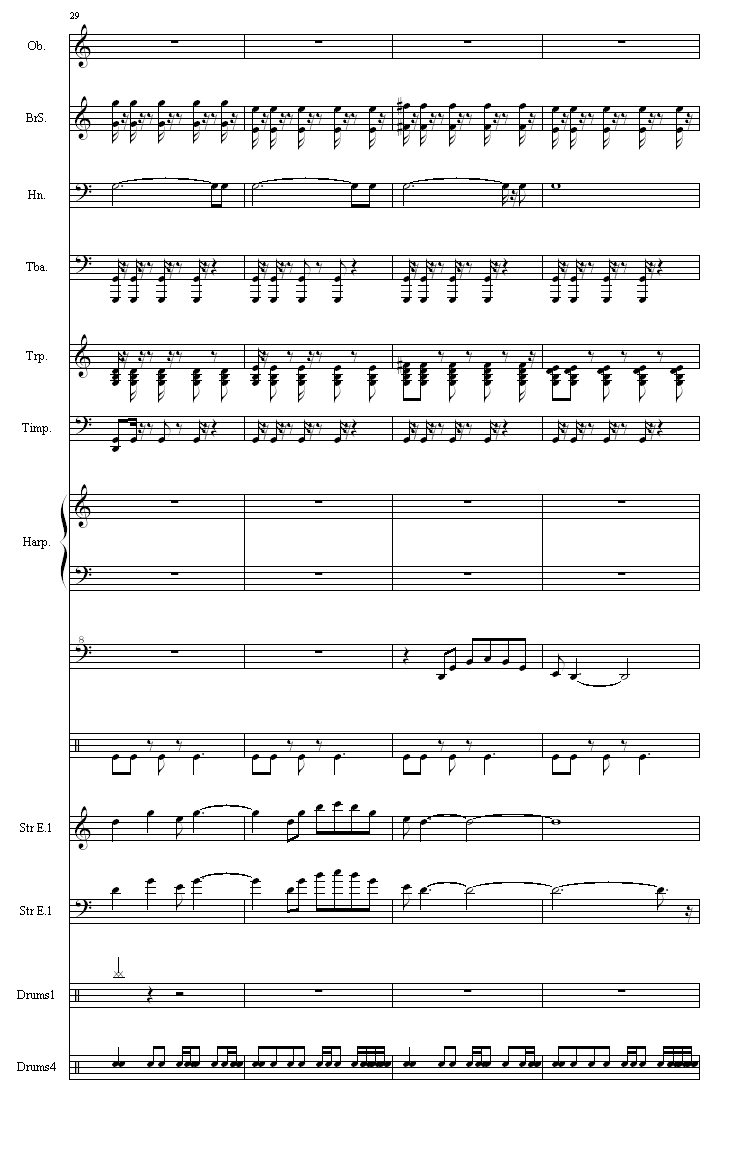 29
Ob.
BrS.
Hn.
Tba.
Trp.
Timp.
Harp.
8
Str E.1
Str E.1
Drums1
Drums4